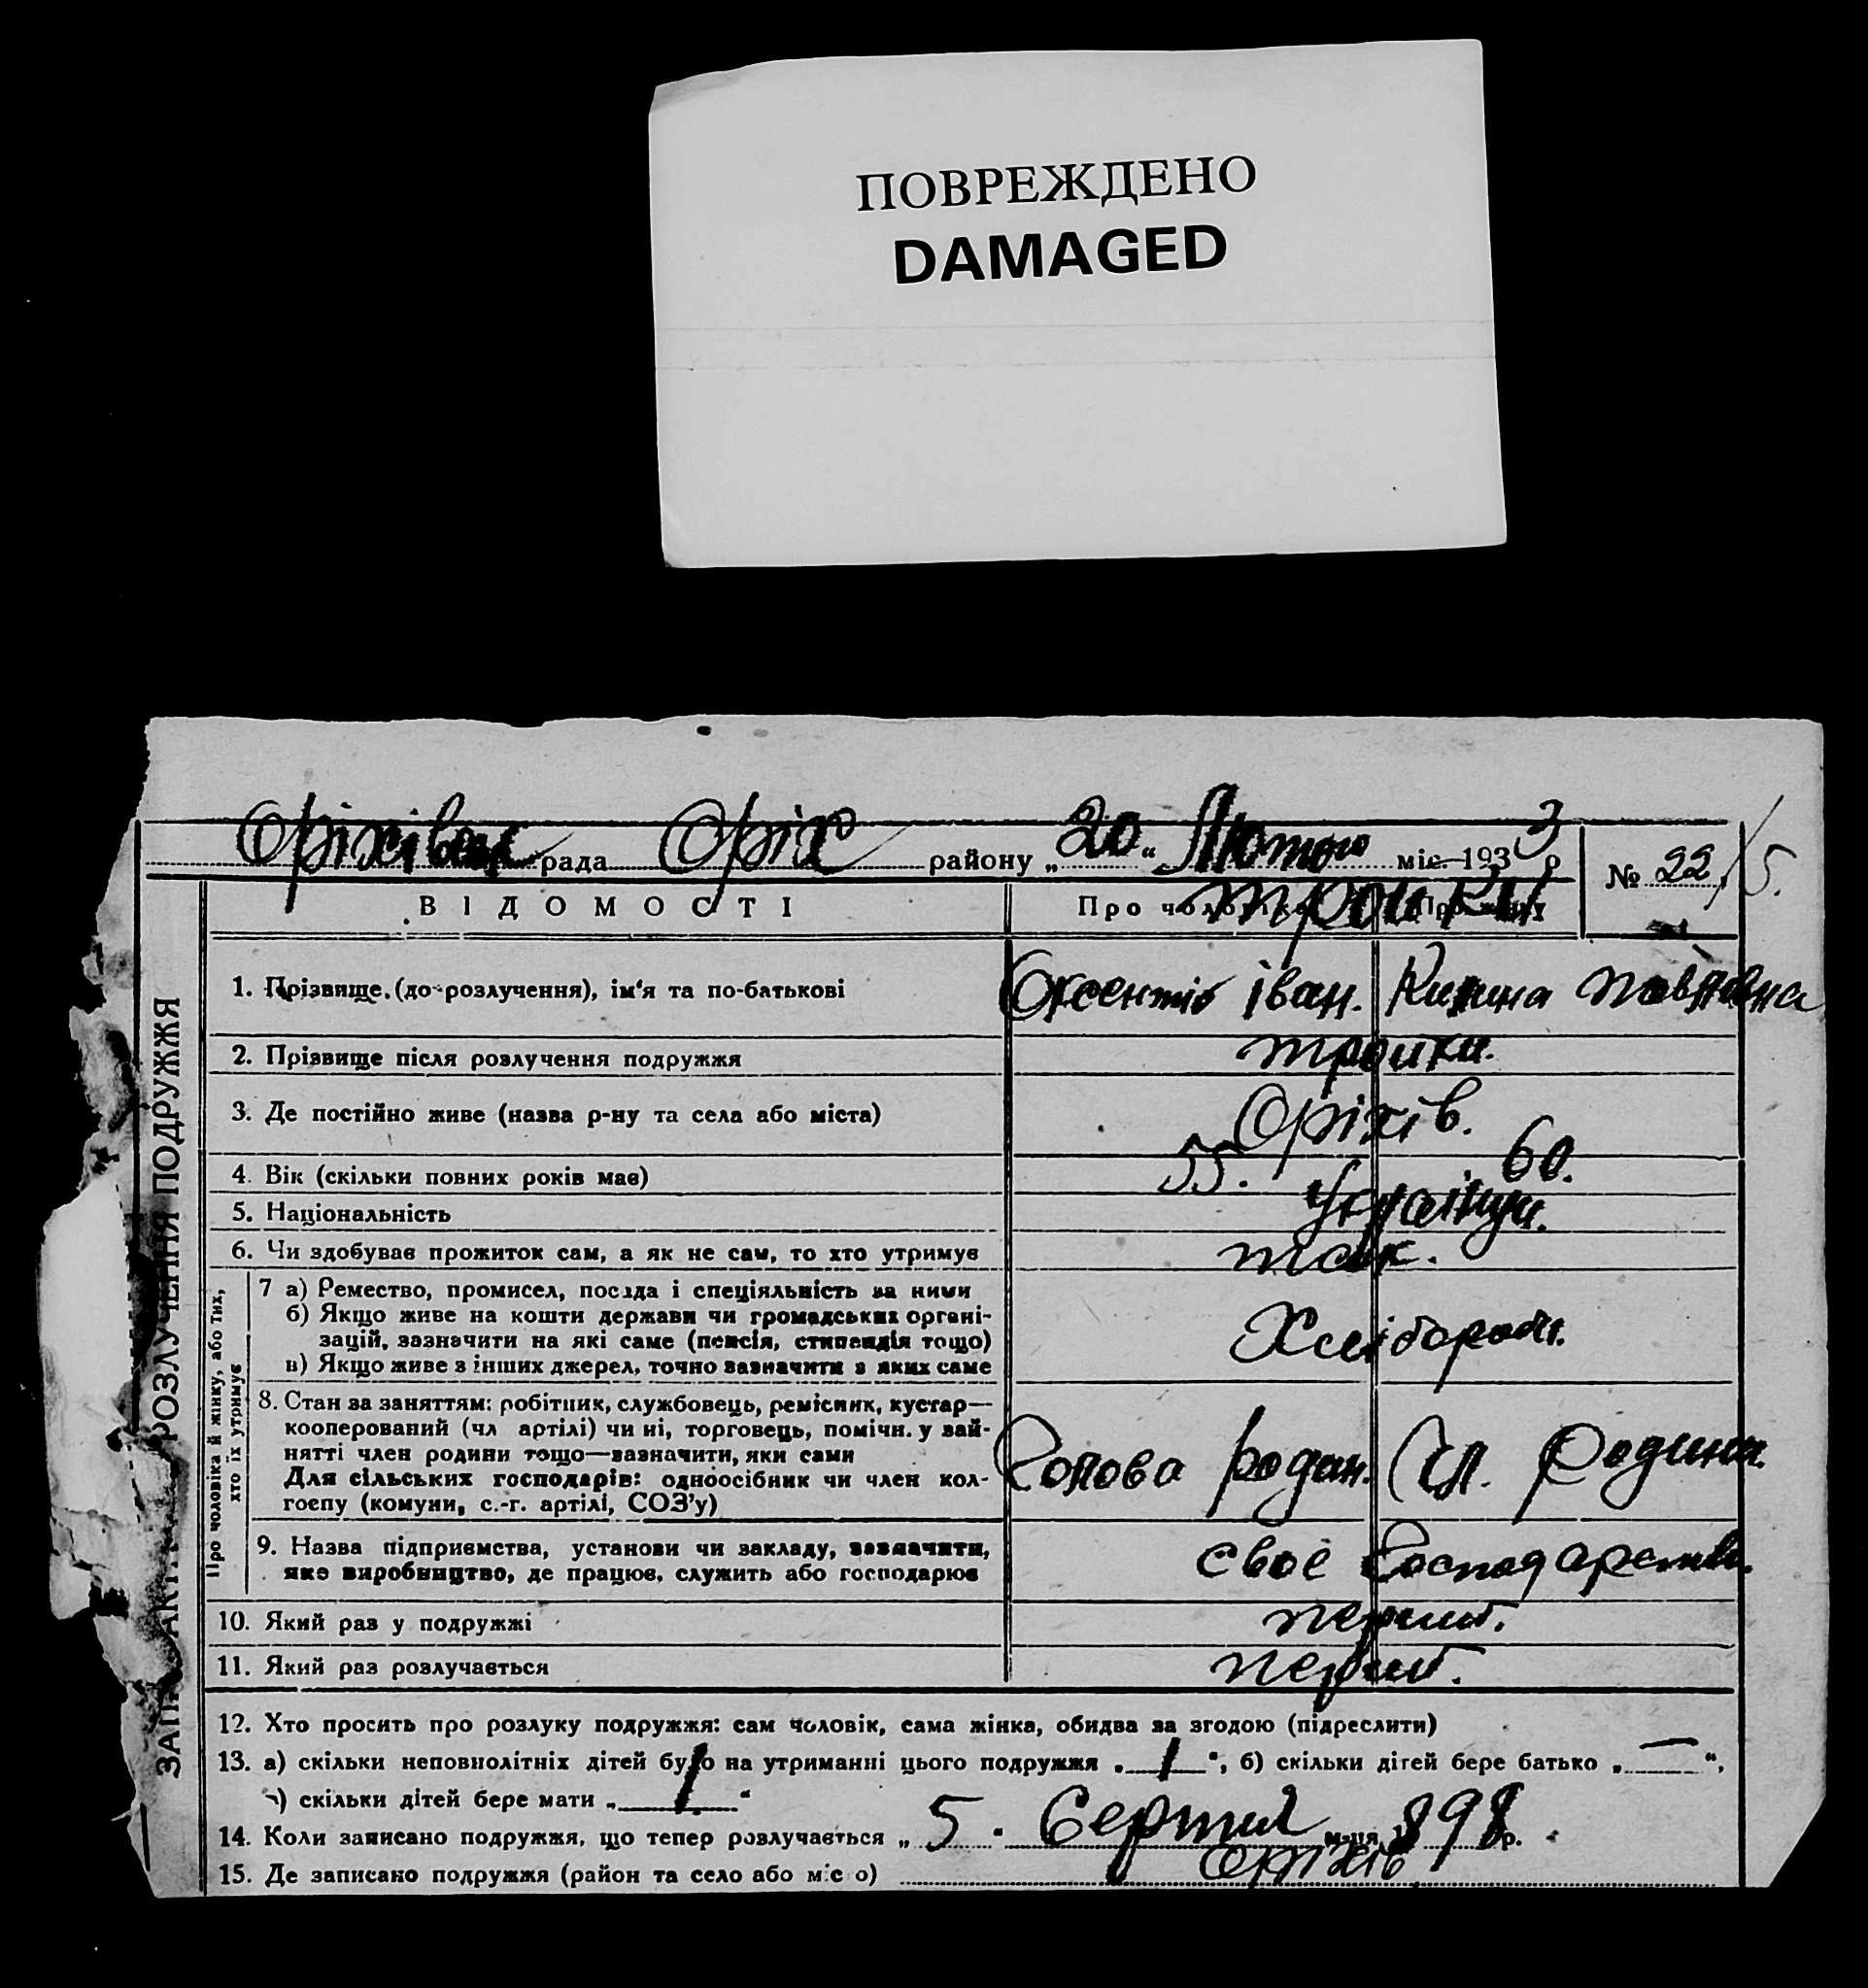 ПОВРЕЖДЕНО
DAMAGED
Оріхівська рада Оріх району „ 20 “ Лютого міс. 1933 р № 22/5.
ВІДОМОСТІ Про чоловіка Про жінку
Троцки
ЗАПИС АКТУ РОЗЛУЧЕННЯ ПОДРУЖЖЯ
1. Прізвище (до розлучення), ім'я та по-батькові Оксентів Іван. Килина Павловна
2. Прізвище після розлучення подружжя Троцки.
3. Де постійно живе (назва р-ну та села або міста) Оріхів.
4. Вік (скільки повних років має) 55. 60.
5. Національність Українци.
6. Чи здобував прожиток сам, а як не сам, то хто утримує так.
Про чоловіка й жінку, або тих, хто їх утримує
7 а) Ремество, промисел, посада і спеціяльність за ними
б) Якщо живе на кошти держави чи громадських органі-
зацій, зазначити на які саме (пенсія, стипендія тощо) Хлібороби.
в) Якщо живе з інших джерел, точно зазначити з яких саме
8. Стан за заняттям: робітник, службовець, ремісник, кустар—
кооперований (чл артілі) чи ні, торговець, помічн. у зай-
нятті член родини тощо—зазначити, яки сами Голова родин. Чл. Родини.
Для сільських господарів: одноосібник чи член кол-
госпу (комуни, с.-г. артілі, СОЗ'у)
9. Назва підприємства, установи чи закладу, зазначити,
яке виробництво, де працює, служить або господарює своє Господарство.
10. Який раз у подружжі перший.
11. Який раз розлучається перший.
12. Хто просить про розлуку подружжя: сам чоловік, сама жінка, обидва за згодою (підреслити)
13. а) скільки неповнолітніх дітей було на утриманні цього подружжя „ 1 “, б) скільки дітей бере батько „ — “,
в) скільки дітей бере мати „ 1 “
14. Коли записано подружжя, що тепер розлучається „ 5 “ Серпня м-ця 1898 р.
15. Де записано подружжя (район та село або місто) Оріхів